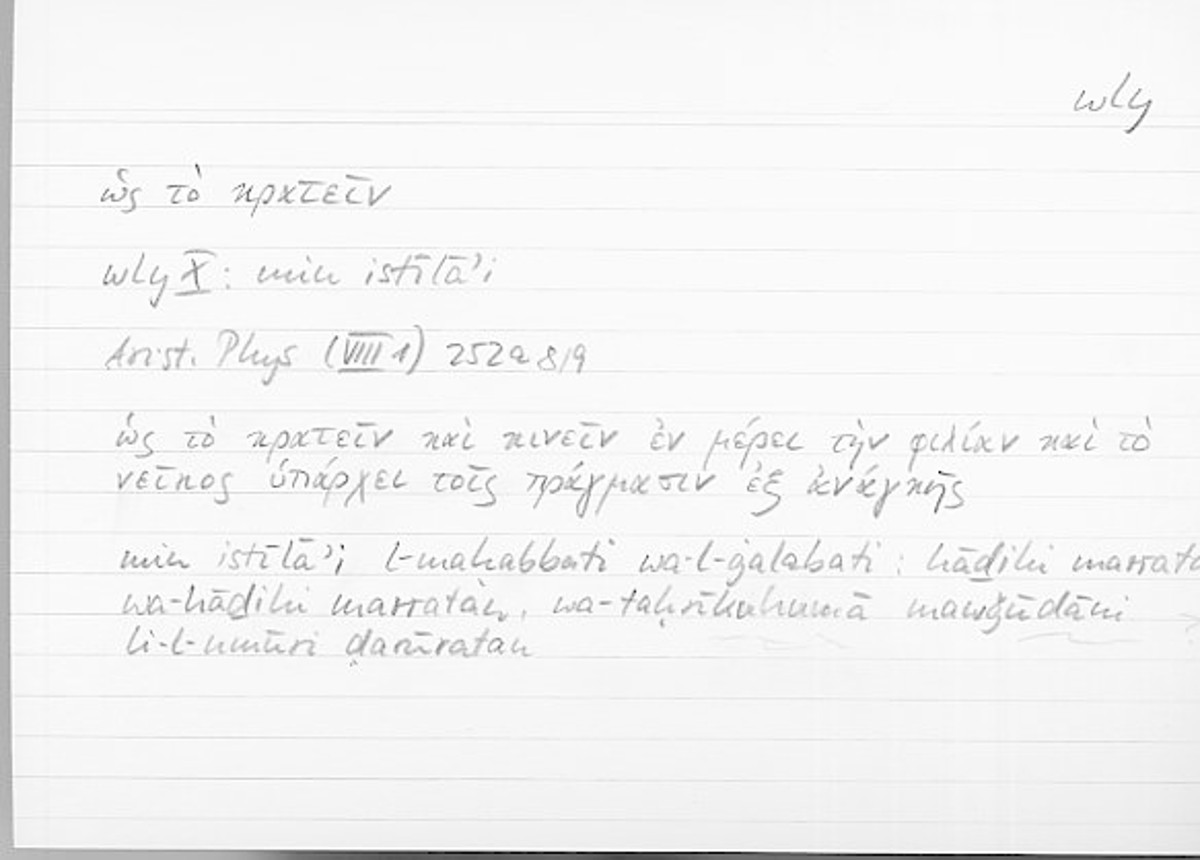 wly
ὡς τὸ κρατεῖν
wly X: min istīlāʾi
Arist. Phys (VIII 1) 252a 8/9
ὡς τὸ κρατεῖν καὶ κινεῖν ἐν μέρει τὴν φιλίαν καὶ τὸ
νεῖκος ὑπάρχει τοῖς πράγμασιν ἐξ ἀνάγκης
min istīlāʾi l-maḥabbati wa-l-ġalabati: hāḏihi
wa-hāḏihi marratan, wa-taḥrīkuhumā mawǧūdāni
li-l-umūri ḍarūratan